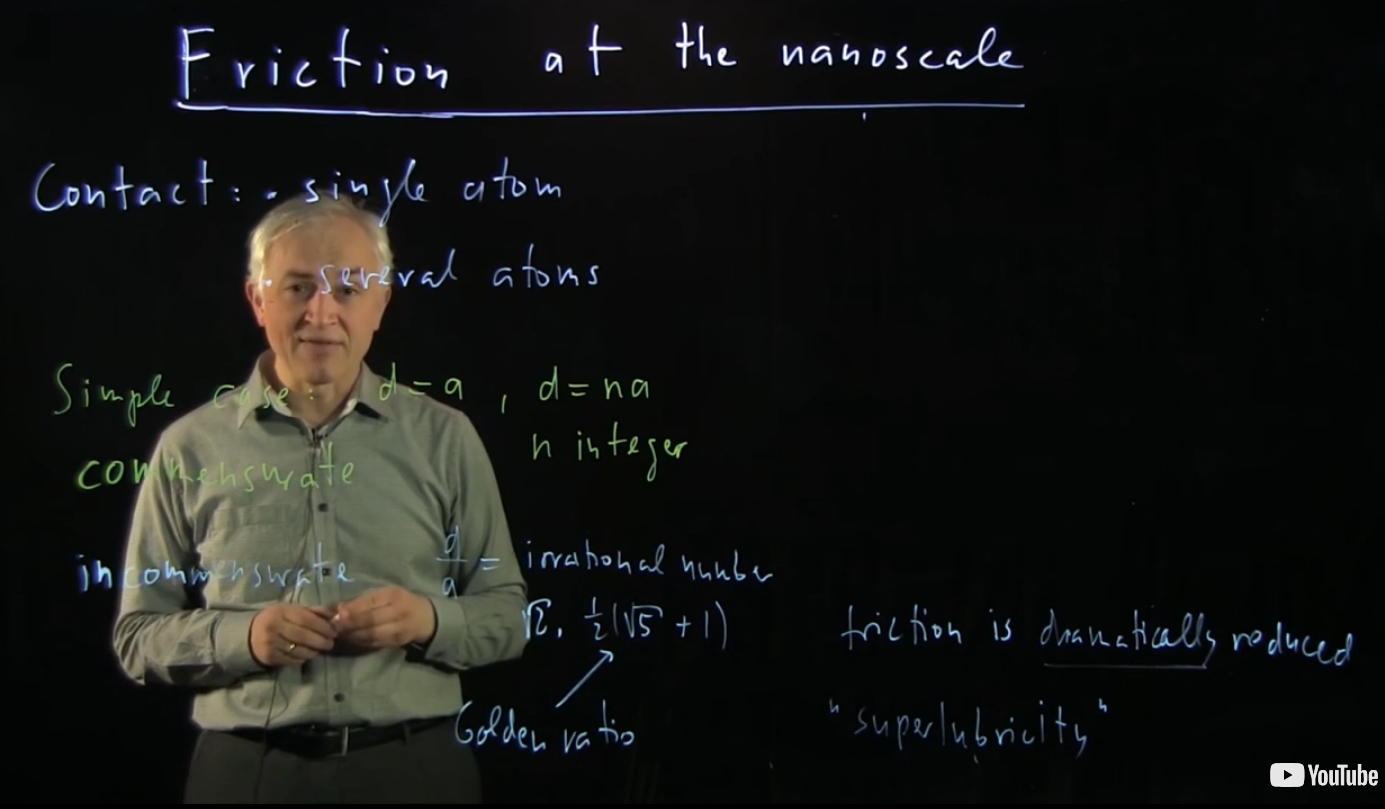 Friction at the nanoscale
Contact: • single atom
• several atoms
Simple case: d = a , d = na
n integer
commensurate
incommensurate d/a = irrational number
√2, ½(√5 + 1)
Golden ratio
friction is dramatically reduced
"superlubricity"
YouTube